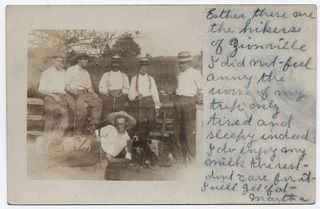 Esther, these are
the hikers
of Zionville
I did not feel
anny the
worse of my
trip only
tired and
sleepy indeed
I do enjoy my
milk the rest
dint care for it
I will get fat
Martha